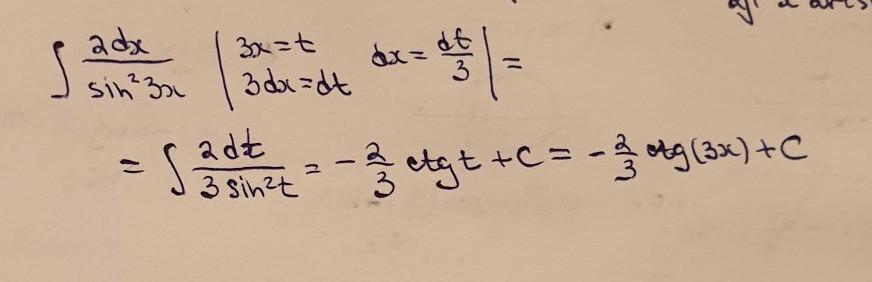 ∫ 2dx / sin²3x | 3x = t 3dx = dt dx = dt/3 | =
= ∫ 2dt / 3 sin²t = - 2/3 ctg t + C = - 2/3 ctg(3x) + C